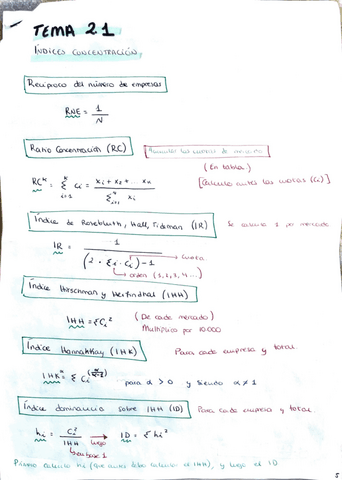 TEMA 21
ÍNDICES CONCENTRACIÓN,
Recíproco del número de empresas
RNE = 1/N
Ratio Concentración (RC)
Acumular las cuotas de mercado
(En tabla)
RC^k = Σ_{i=1}^{k} Ci = (x1 + x2 + xn) / Σ xi
[Calculo antes las cuotas (Ci)]
Índice de Rosebluth, Hall, Tidman (IR)
Se calcula 1 por mercado
IR = 1 / ((2 · Σi · Ci) - 1)
cuota
orden (1, 2, 3, 4 ...)
Índice Hirschman y Herfindhal (IHH)
IHH = Σ Ci²
(De cada mercado)
Multiplico por 10000
Índice HannahKay (IHK)
Para cada empresa y total.
para α > 0 y siendo α ≠ 1
Índice dominancia sobre IHH (ID)
Para cada empresa y total.
hi = Ci² / IHH → luego ID = Σ hi²
en base 1
Primero calculo hi (que antes debo calcular el IHH), y luego el ID
5